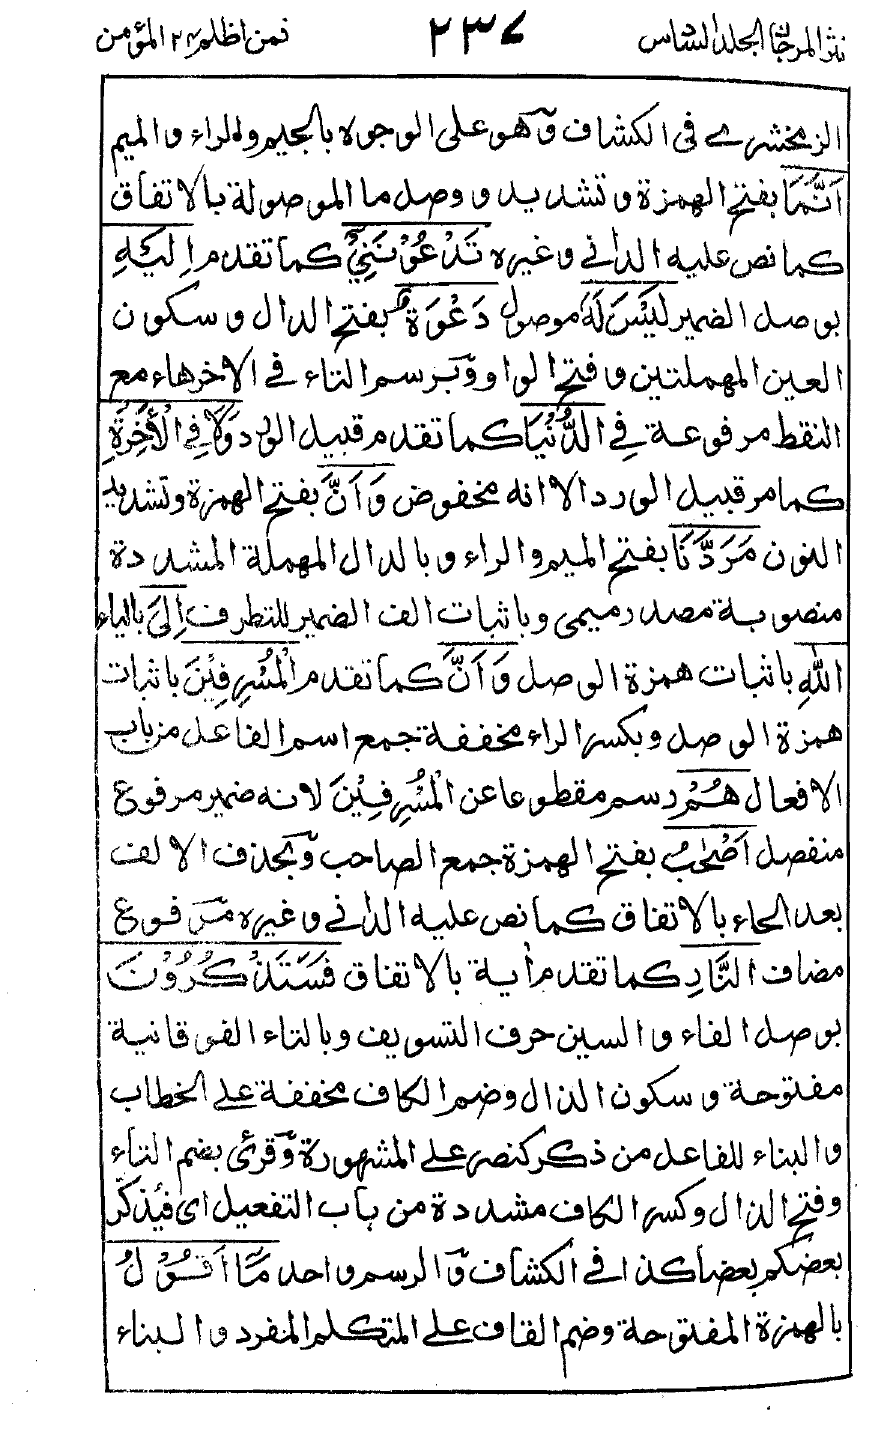 نثر المرجان المجلد السادس ٢٣٧ فمن اظلم ٢٤ المؤمن
الزمخشرى فى الكشاف وهو على الوجوه بالجيم والراء والميم
اَنَّمَا بفتح الهمزة وتشديد ووصل ما الموصولة بالاتفاق
كما نص عليه الدانى وغيره تَدْعُوْنَنِىْ كما تقدم اِلَيْهِ
بوصل الضمير لَيْسَ لَهٗ موصول دَعْوَةٌ بفتح الدال وسكون
العين المهملتين وفتح الواو وبرسم التاء فى الاخر هاء مع
النقط مرفوعة فِى الدُّنْيَا كما تقدم قبيل الورد وَلَا فِى الْاٰخِرَةِ
كما مر قبيل الورد الا انه مخفوض وَاَنَّ بفتح الهمزة وتشديد
النون مَرَدَّنَا بفتح الميم والراء وبالدال المهملة المشددة
منصوبة مصدر ميمى وباثبات الف الضمير للتطرف اِلَى بالياء
اللّٰهِ باثبات همزة الوصل وَاَنَّ كما تقدم الْمُسْرِفِيْنَ باثبات
همزة الوصل وبكسر الراء مخففة جمع اسم الفاعل من باب
الافعال هُمْ رسم مقطوعا عن الْمُسْرِفِيْنَ لانه ضمير مرفوع
منفصل اَصْحٰبُ بفتح الهمزة جمع الصاحب وبحذف الالف
بعد الحاء بالاتفاق كما نص عليه الدانى وغيره مرفوع
مضاف النَّارِ كما تقدم أية بالاتفاق فَسَتَذْكُرُوْنَ
بوصل الفاء والسين حرف التسويف وبالتاء الفوقانية
مفتوحة وسكون الذال وضم الكاف مخففة على الخطاب
والبناء للفاعل من ذكر كنصر على المشهورة وقرئ بضم التاء
وفتح الذال وكسر الكاف مشددة من باب التفعيل اى فيذكّر
بعضكم بعضا كذا فى الكشاف والرسم واحد مَآ اَقُوْلُ
بالهمزة المفتوحة وضم القاف على المتكلم المنفرد والبناء